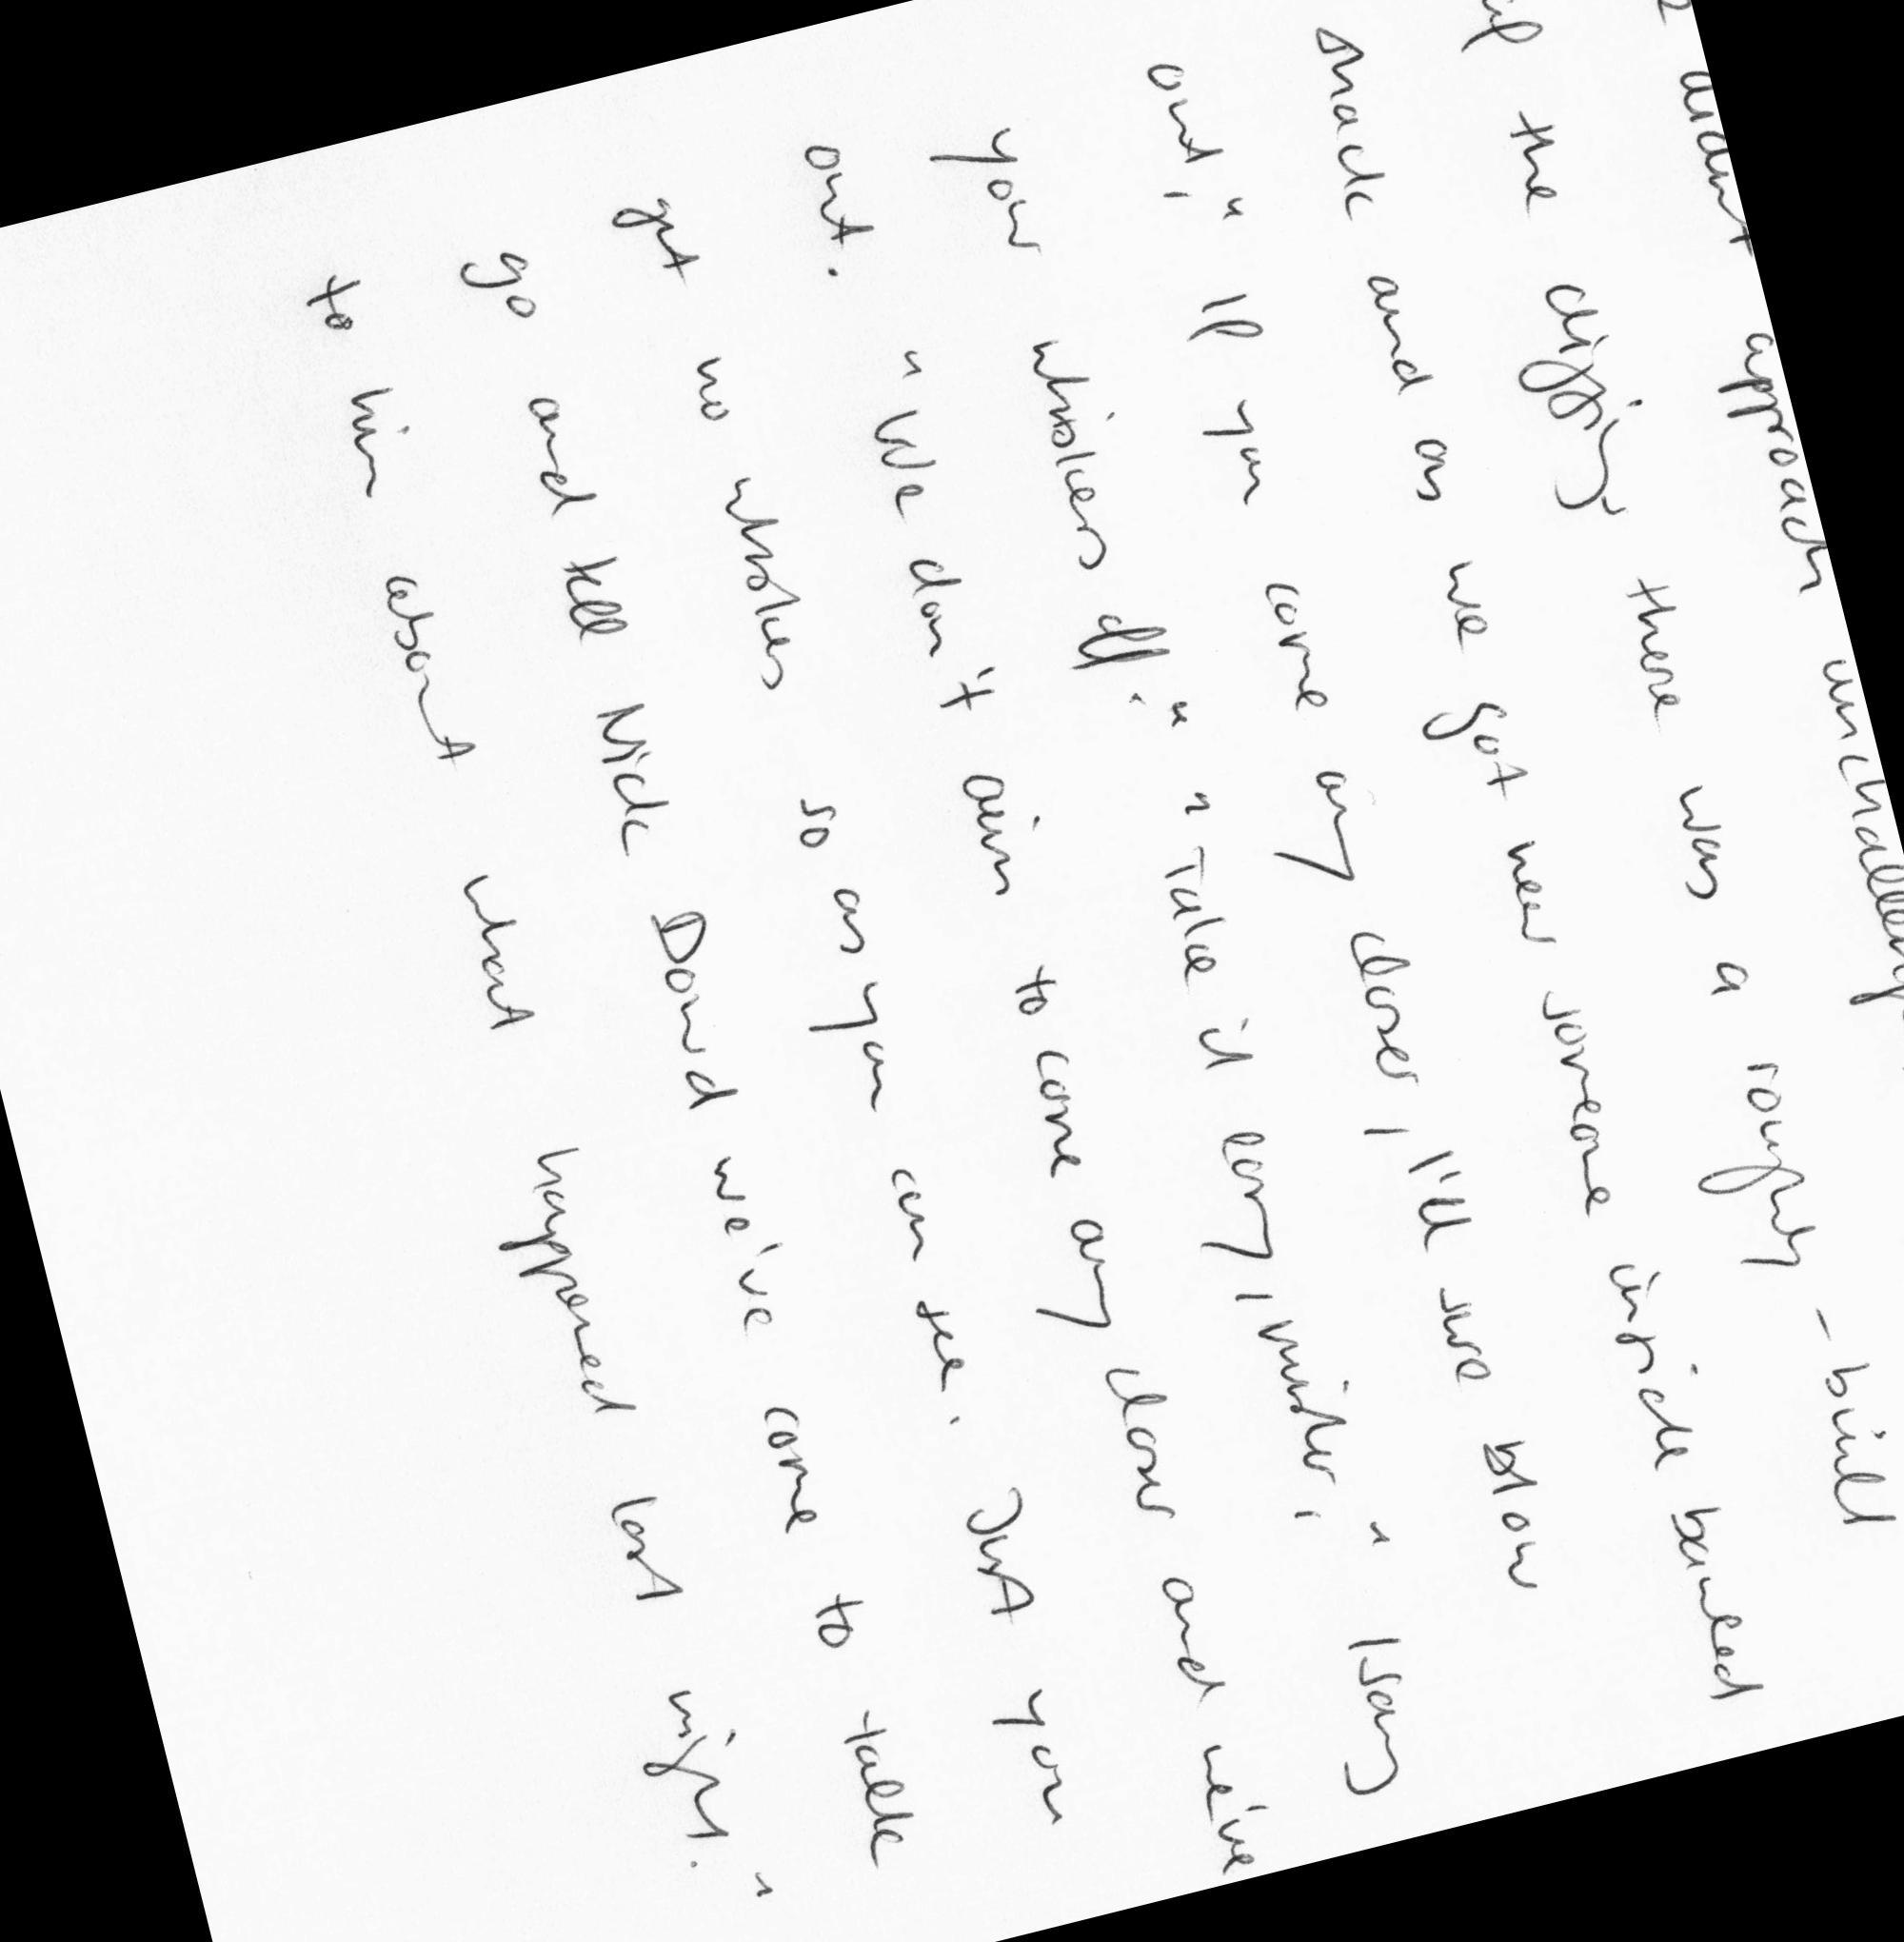 didn't approach
the digging, there was a roughly - built
shack and as we got near someone inside bawled
out, " If you come any closer, I'll sure blow
your whiskers off. " " Take it easy, mister, " I say
out. " We don't aim to come any closer and we've
got no whiskers so as you can see. Just you
go and tell Nick Dowd we've come to talk
to him about what happened last night. "